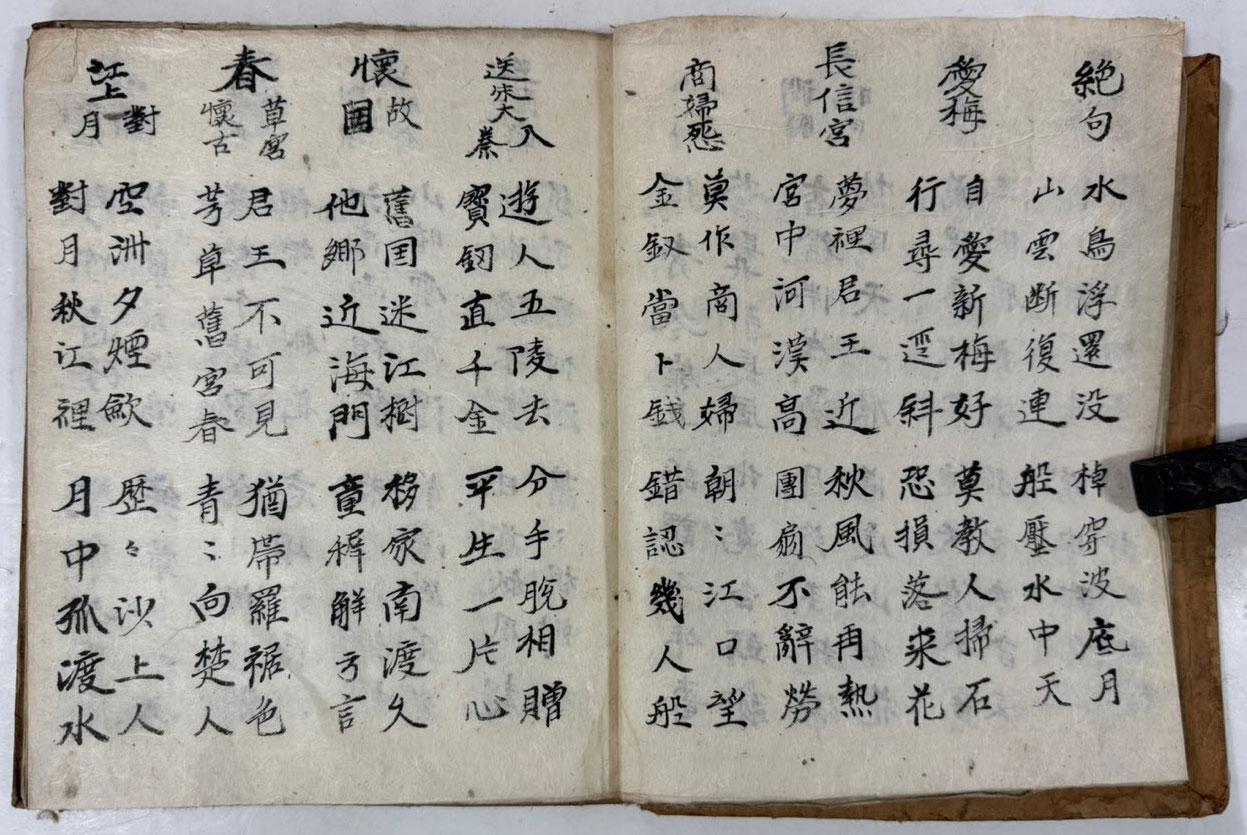 絶句
水鳥浮還没 棹穿波底月
山雲断復連 般壓水中天
愛梅
自愛新梅好 莫教人掃石
行尋一逕斜 恐損落来花
長信宮
夢裡君王近 秋風能再熱
宮中河漢高 團扇不辭勞
商婦怨
莫作商人婦 朝〻江口望
金釵當卜錢 錯認幾人般
送朱大入秦
遊人五陵去 分手脱相贈
寶釼直千金 平生一片心
懷故国
舊囯迷江樹 移家南渡久
他鄉近海門 童稺解方言
春草宮懷古
君王不可見 猶帶羅裾色
芳草舊宮春 青〻向楚人
江上對月
空洲夕煙歛 歷々沙上人
對月秋江裡 月中孤渡水